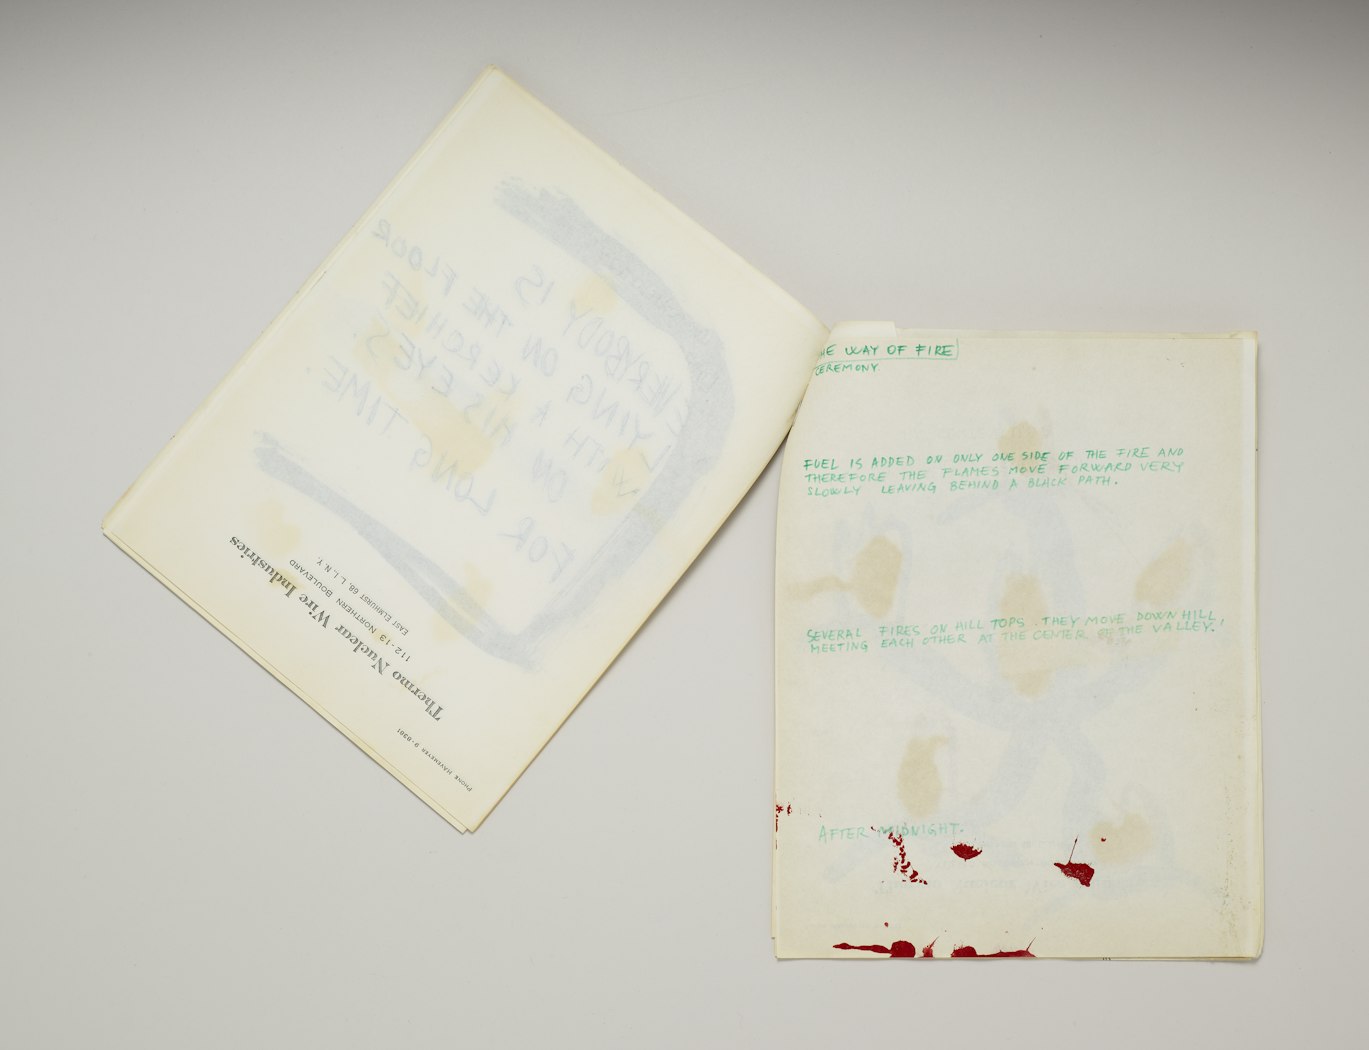 EVERYBODY IS
LYING ON THE FLOOR
WITH A KERCHIEF
ON HIS EYES.
FOR LONG TIME.
Thermo Nuclear Wire Industries
112-13 NORTHERN BOULEVARD
EAST ELMHURST 68, L. I., N. Y.
PHONE HAVEMEYER 9-8301
THE WAY OF FIRE
CEREMONY
FUEL IS ADDED ON ONLY ONE SIDE OF THE FIRE AND
THEREFORE THE FLAMES MOVE FORWARD VERY
SLOWLY LEAVING BEHIND A BLACK PATH.
SEVERAL FIRES ON HILL TOPS. THEY MOVE DOWN HILL,
MEETING EACH OTHER AT THE CENTER OF THE VALLEY.
AFTER MIDNIGHT.